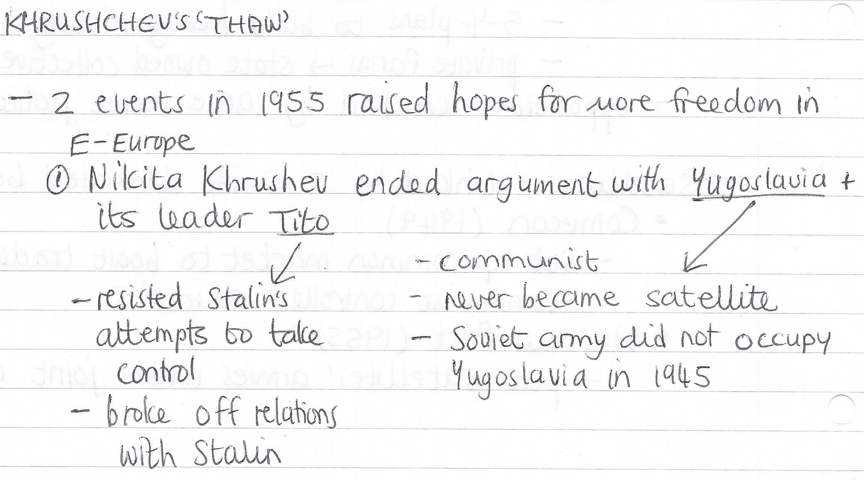 KHRUSHCHEV'S 'THAW'
- 2 events in 1955 raised hopes for more freedom in
E-Europe
① Nikita Khrushev ended argument with Yugoslavia +
its leader Tito
- resisted Stalin's
attempts to take
control
- broke off relations
with Stalin
- communist
- never became satellite
- Soviet army did not occupy
Yugoslavia in 1945